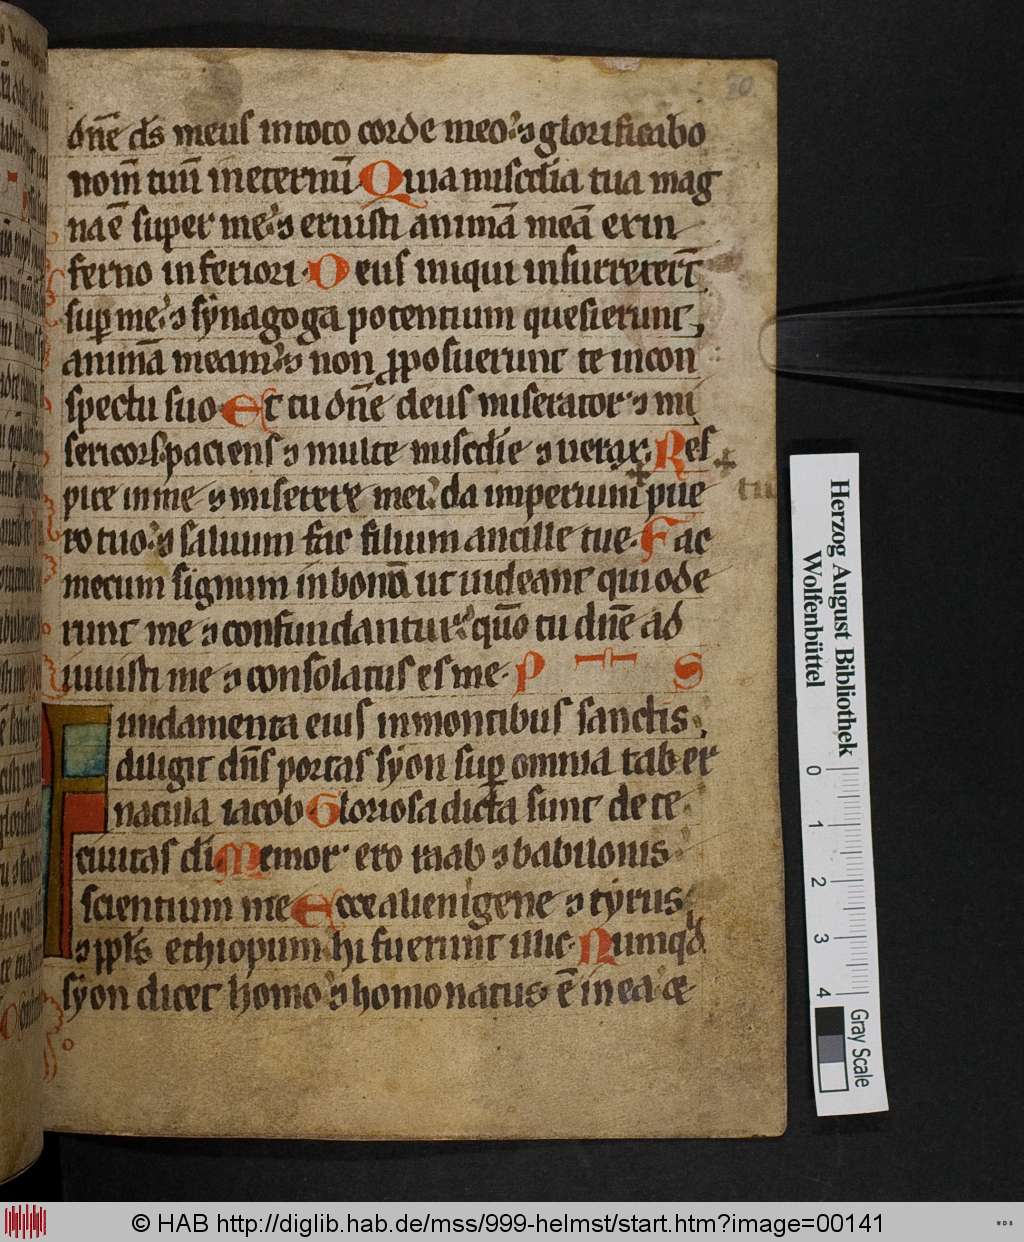 dn̄e ds̄ meus in toto corde meo ⁊ glorificabo
nom̄ tuū in eternū Quia misc̄dia tua mag
na ē super me ⁊ eruisti animā meā ex in
ferno inferiori Deus iniqui insurrexer̄t
sup̱ me ⁊ synagoga potentium quesierunt
animā meam ⁊ non ꝓposuerunt te in con
spectu suo Et tu dn̄e deus miserator ⁊ mi
sericors paciens ⁊ multe misc̄die ⁊ uerax Res
pice in me ⁊ miserere mei da imperium pue
tuū
ro tuo ⁊ saluum fac filium ancille tue Fac
mecum signum in bonū ut uideant qui ode
runt me ⁊ confundantur qm̄o tu dn̄e ad
iuuisti me ⁊ consolatus es me P S
Fundamenta eius in montibus sanctis
diligit dn̄s portas syon sup̱ omnia taber
nacula iacob Gloriosa dicta sunt de te
ciuitas di Memor ero raab ⁊ babilonis
scientium me Ecce alienigene ⁊ tyrus
⁊ ppl̄s ethiopum hi fuerunt illic Numqd̄
syon dicet homo ⁊ homo natus ē in ea ⁊
Herzog August Bibliothek
Wolfenbüttel
0 1 2 3 4
Gray Scale
© HAB http://diglib.hab.de/mss/999-helmst/start.htm?image=00141